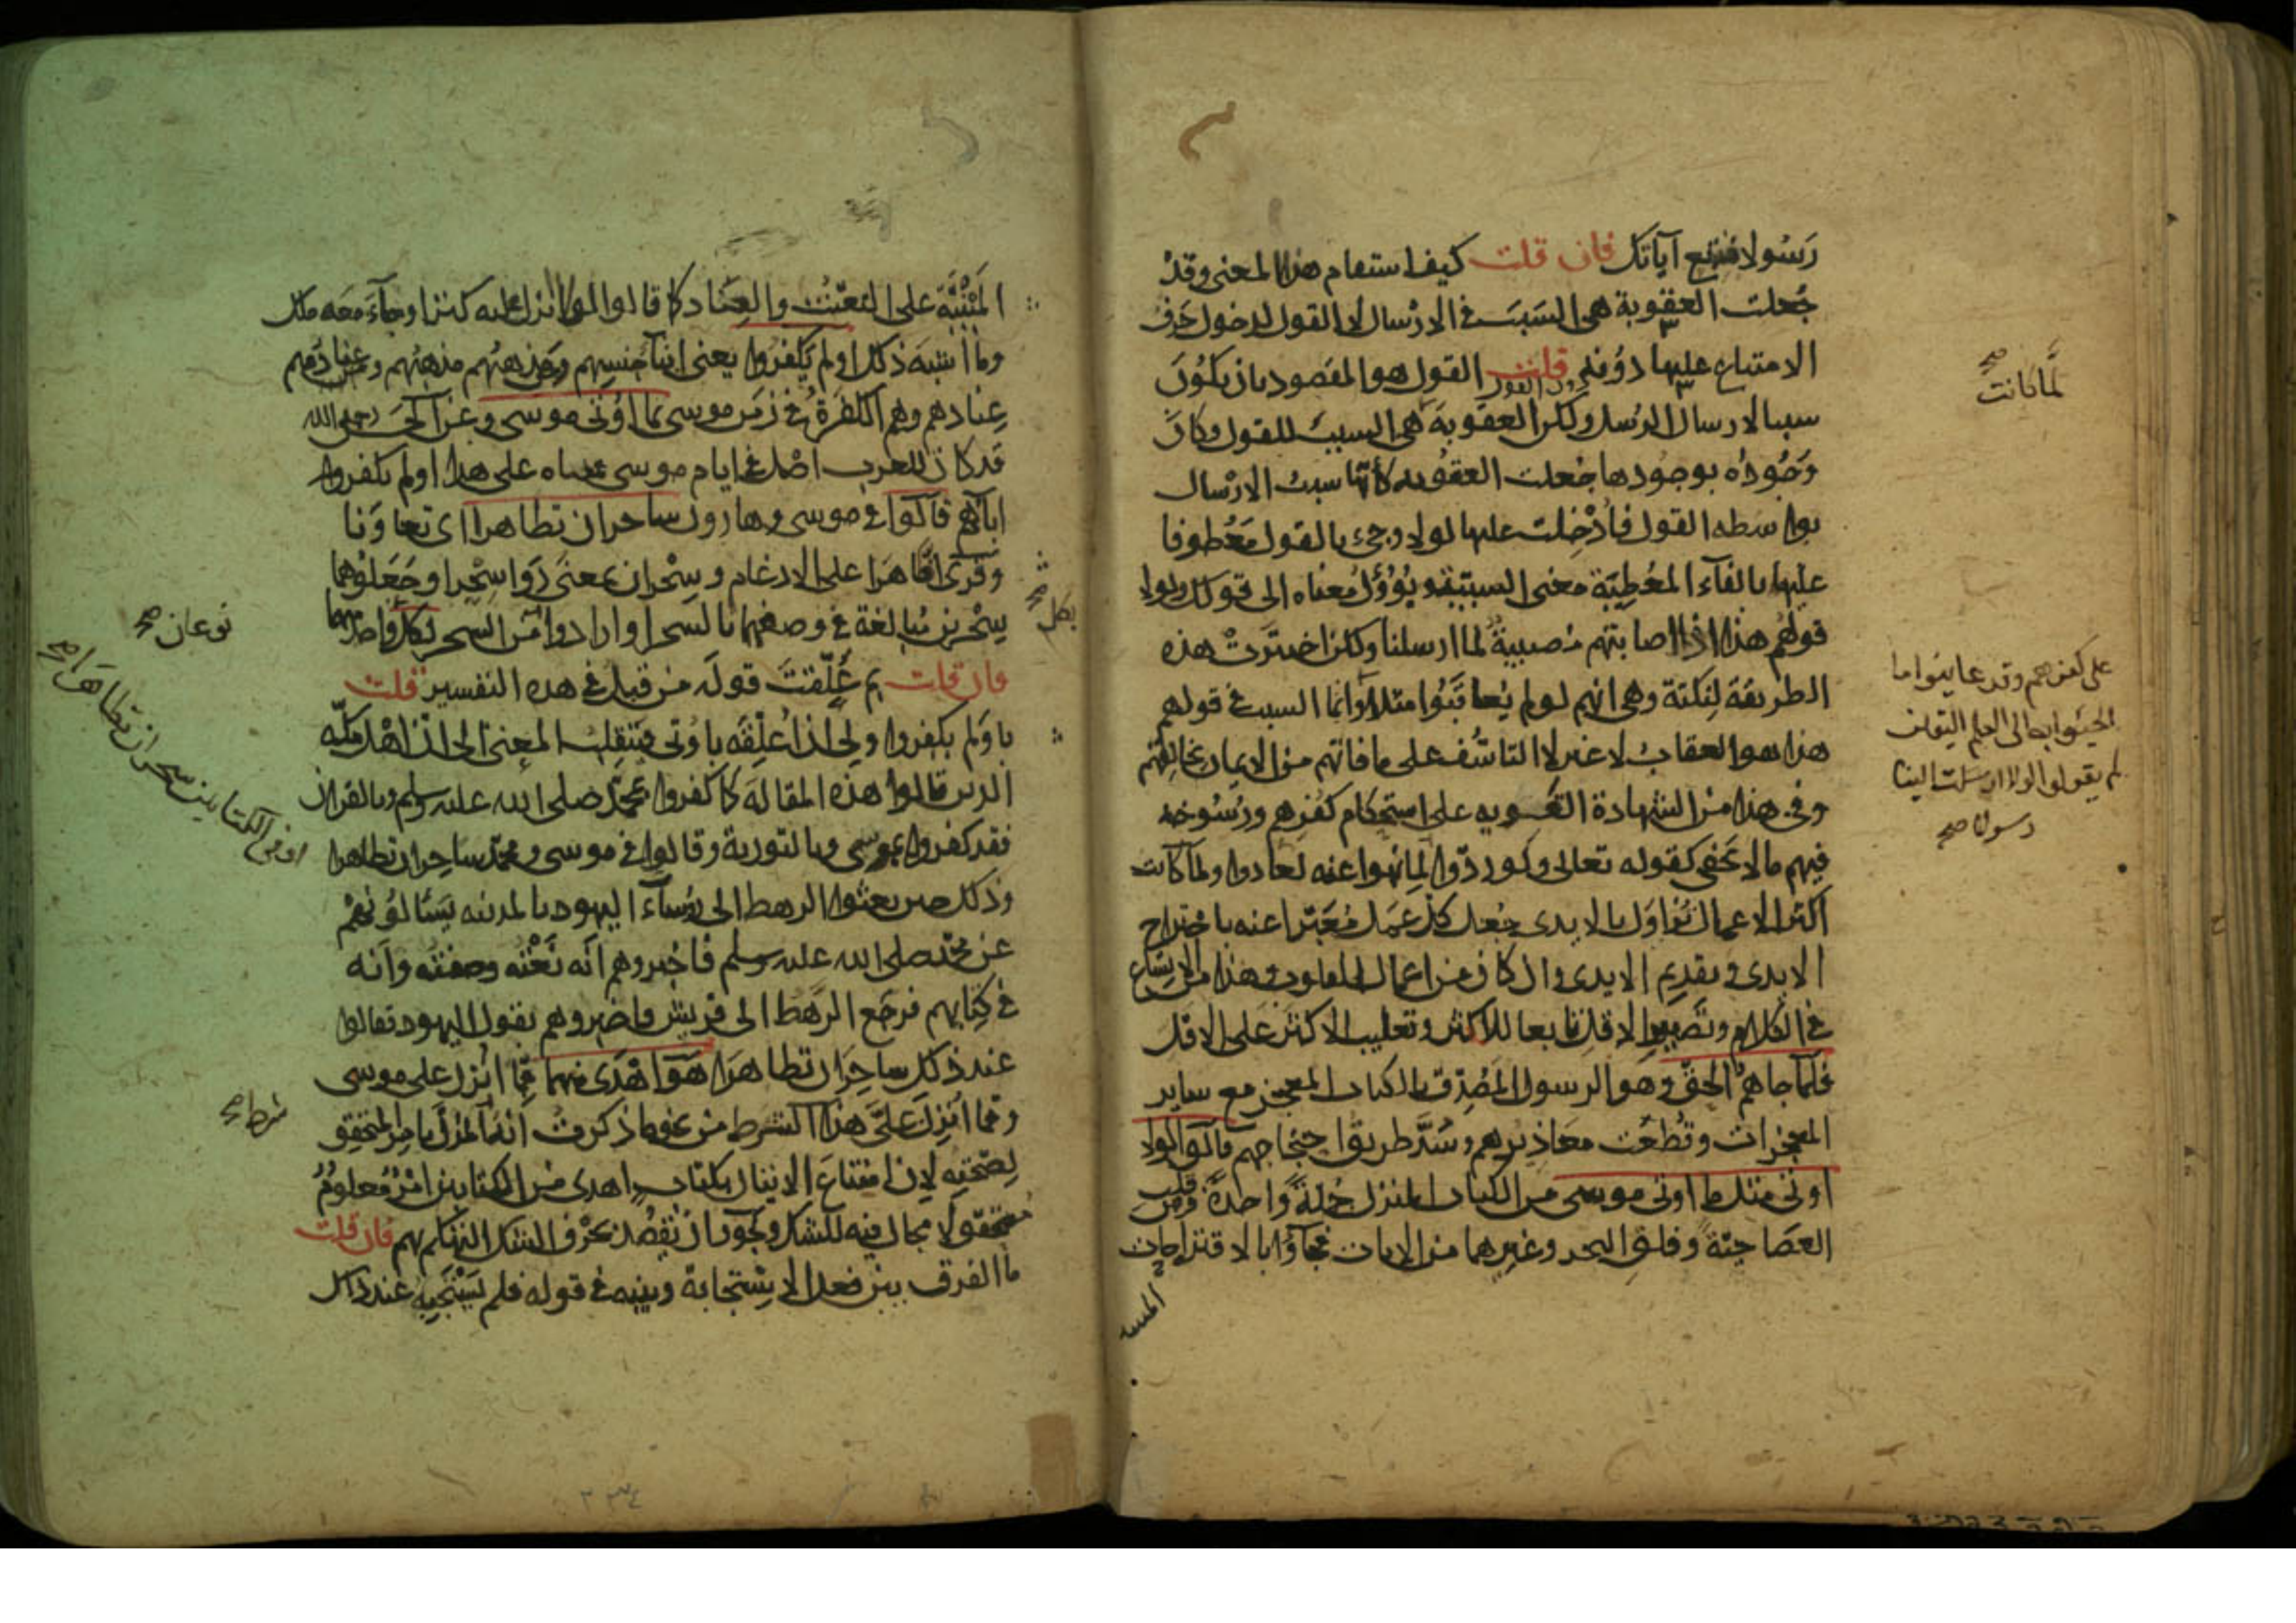 رَسُولا فنتبع آياتك فان قلت كيف استقام هذا المعنى وقدْ
جُعلت العقوبة هى السَبَبَ فى الارْسال لا القول لدخول حَرف
الامتناع عليها دُونه قلت القول هو المقصود بان يكُونَ
سببا لارسال الرُسل ولكن العقوبة لما كانت هى السببَ للقول وكان
وَجُودُه بوجُودها جُعلت العقوبه كأنّها سببُ الارْسال
بواسطه القول فأدْخِلت عليها لولا وجىء بالقول مَعْطوفا
عليها بالفآء المُعْطِيَة معنى السببيّة ويُؤوّلُ معْناه الى قولك ولولا
قولهُم هذا اذا اصابتهم مُصيبةٌ لما ارسلنا ولكن اختيرتْ هذه
الطريقة لنِكتة وهى انهم لو لم يُعاقبُوا مثلا وانما السبب فى قولهم
هذا هو العقابُ لا غير لا التاسُّف على ما فاتهم من الايمان بخالقهم
وفى هذا من الشهادة القَويه على استحكام كفْرهم ورُسُوخه
فيهم ما لا يَخْفى كقوله تعالى ولو ردّوا لِما نُهوا عنه لعادوا ولمّا كانت
اكثر الاعمال تُزاوَل بالايدى جُعل كلّ عَمَل مُعَبّرا عنه باجتراح
الايدى وتقديم الايدى وان كان من اعمال القلوب وهذا من الاتساع
فى الكلام وتَصْيير الاقل تابعا للاكثر وتغليب الاكثر على الاقل
فلمّا جاهمُ الحقّ وهو الرسول المُصَدّق بالكتاب المعجز مع ساير
المعجزات وقُطعت معاذيرهم وسُدّ طريق احتجاجهم قالوا لولا
اوتى مثل ما اوتى موسى من الكتاب المنزل جُملةً واحدةً ومن قلب
العَصَا حيّةً وفلق البحر وغيرهما من الايات فجآؤا بالاقتراحات
المبنيه
لمّا كانت صح
على كفرهم وقد عاينوا ما
الجئوا به الى العلم اليقين
لم يقولوا لولا ارسلت الينا
رسولا صح
المَبْنِيَّة على التعَنُّت والعِنَاد كما قالوا لولا انزل عليه كنز او جآءَ معَه ملك
وما اشبَه ذلك اولم يَكْفُروا يعنى ابنآءَ جنسهم ومَن مذهبُهم مذهبُهم وعنادُهم
عِنادهم وهم الكَفَرةُ فى زمَن موسى بما اوتى موسى وعن الحَسَن رحمه الله
قد كان للعرب اصْل فى ايام موسى فمعناه على هذا اولم يكفروا
ابآؤهم قالوا فى موسى وهارون ساحران تظاهرا اى تعاوَنا
وقُرئ اظّاهَرا على الادغام وسِحْران بمعنى ذَوا سِحْرٍ او جَعَلُوهُما
سِحْرين مُبالغة فى وصفهما بالسحر او ارادوا نوعان من السحر بكل واحد منهما
فان قلت بم عُلّقتْ قوله من قبلُ فى هذه التفسير قلت
باوَلم يكفروا ولى ان اُعلِّقَه باوتى فينقلبُ المعنى الى انّ اهْل مكّه
الذين قالوا هذه المقالة كما كفروا بمحمّد صلى الله عليه وسلم وبالقران
فقد كفروا بموسى وبالتورية وقالوا فى موسى ومحمّد ساحِران تظاهرا
وذلك حين بعثوا الرهط الى رُؤسآءِ اليهود بالمدينه يَسْألُونَهُمْ
عن محمّد صلى الله عليه وسلم فاخبروهم انّه نَعْتُه وصِفتُه وانّه
فى كِتابِهم فرجَع الرَّهْط الى قريش فاخبروهم بقول اليهود فقالوا
عند ذلك ساحِرَان تظاهَرا هوَ اهْدَى منهما مِمّا انْزل على موسى
وممّا اُنْزِل عَلىَّ هذا الشرط من نحو ما ذكرتُ انهُ المُدِلّ بامر المتحقق
لصحته لانّ امتناعَ الاتيان بكتاب اهدى من الكتابين امْرٌ مُعلومٌ
مُتحقق لا مجال فيه للشك ويجُوز ان يُقصَد بحَرْف الشك التهكّم بهم فان قلت
ما الفرق بين فعل الاسِتجابة وبينه فى قوله فلم يَسْتَجِبْه عند ذاك
بكل صح
نوعان صح
او فى الكتابين سحران تظاهَرا صح
شرط صح
٢٣٤